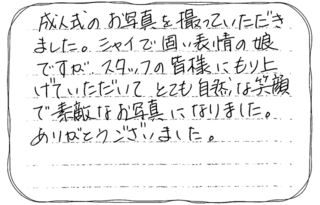 成人式のお写真を撮っていただき
ました。シャイで固い表情の娘
ですが、スタッフの皆様にもり上
げていただいて とても自然な笑顔
で素敵なお写真になりました。
ありがとうございました。